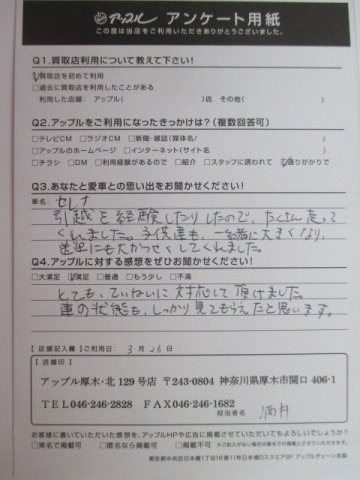 アップル アンケート用紙
この度は当店をご利用いただきありがとうございました。
Q1.買取店利用について教えて下さい!
☑買取店を初めて利用
□過去に買取店を利用したことがある
利用した店舗: アップル( )店 その他( )
Q2.アップルをご利用になったきっかけは?(複数回答可)
□テレビCM □ラジオCM □新聞・雑誌(媒体名/ )
□アップルのホームページ □インターネット(サイト名 )
□チラシ □DM □利用経験があるので □紹介 □スタッフに誘われて ☑通りがかりで
Q3.あなたと愛車との思い出をお聞かせください!
車名: セレナ
引越を経験したりしたので、たくさん走って
くれました。子供達も、一緒に大きくなり、
送迎にも大かつやくしてくれました。
Q4.アップルに対する感想をぜひお聞かせください!
□大満足 ☑満足 □普通 □もう少し □不満
とても、ていねいに対応して頂けました。
車の状態も、しっかり見てもらえたと思います。
【店舗記入欄】ご利用日: 3月26日
【店舗印】
アップル厚木・北129号店 〒243-0804 神奈川県厚木市関口406-1
TEL046-246-2828 FAX046-246-1682
担当者名 酒井
お客様に書いていただいた感想を、アップルHPや広告に掲載させていただいてもよろしいでしょうか?
□実名で掲載可 □匿名なら掲載可 □不可
東京都中央区日本橋1丁目18番11号日本橋DスクエアGF アップルチェーン本部